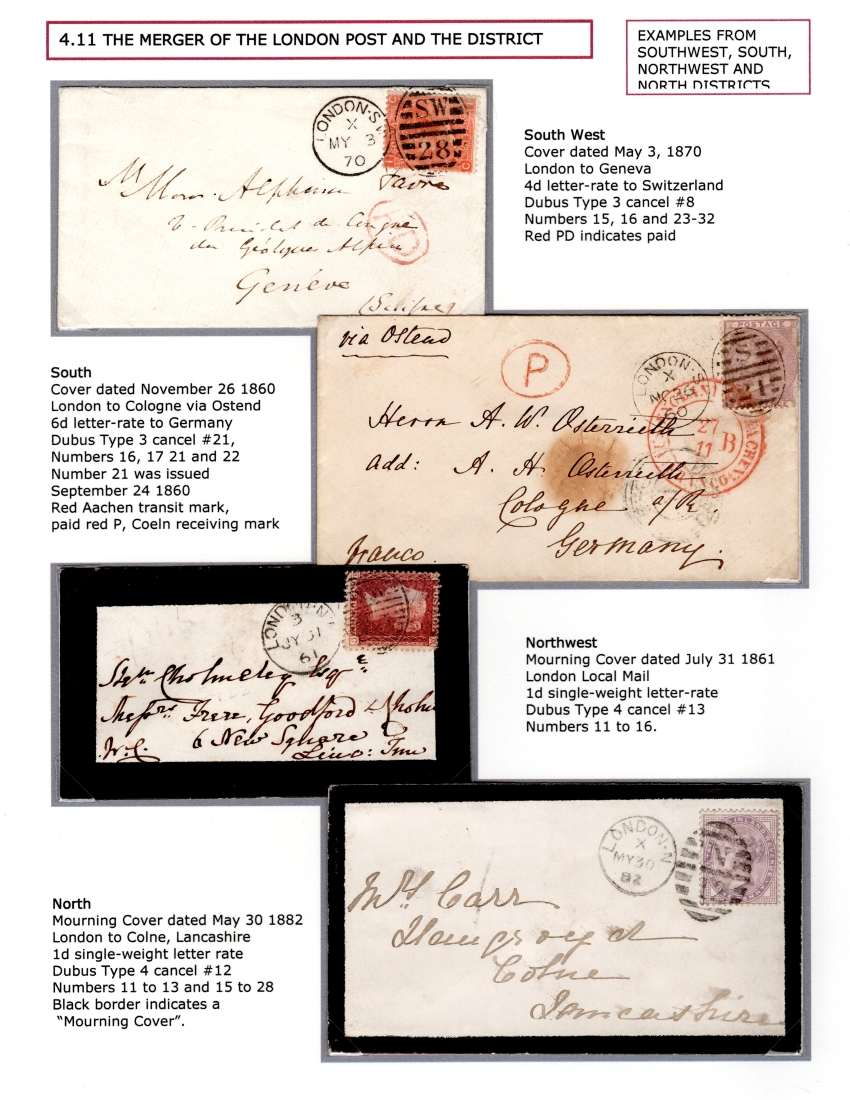 4.11 THE MERGER OF THE LONDON POST AND THE DISTRICT
EXAMPLES FROM
SOUTHWEST, SOUTH,
NORTHWEST AND
NORTH DISTRICTS
LONDON·SW
X
MY 3
70
SW
28
South West
Cover dated May 3, 1870
London to Geneva
4d letter-rate to Switzerland
Dubus Type 3 cancel #8
Numbers 15, 16 and 23-32
Red PD indicates paid
Alphonse Favre
Genève
PD
South
Cover dated November 26 1860
London to Cologne via Ostend
6d letter-rate to Germany
Dubus Type 3 cancel #21,
Numbers 16, 17 21 and 22
Number 21 was issued
September 24 1860
Red Aachen transit mark,
paid red P, Coeln receiving mark
via Ostend
P
POSTAGE
LONDON·S
X
NO 26
60
S
21
27
11
B
Herrn A. W. Osterrieth
add: A. H. Osterrieth
Cologne a/R.
Germany.
franco.
LONDON·N
3
JY 31
61
Cholmeley Esqre
Messrs Frere, Goodford &
W.C. 6 New Square
Linc: Inn
Northwest
Mourning Cover dated July 31 1861
London Local Mail
1d single-weight letter-rate
Dubus Type 4 cancel #13
Numbers 11 to 16.
North
Mourning Cover dated May 30 1882
London to Colne, Lancashire
1d single-weight letter rate
Dubus Type 4 cancel #12
Numbers 11 to 13 and 15 to 28
Black border indicates a
“Mourning Cover”.
LONDON·N
X
MY 30
82
N
Mrs Carr
Colne
Lancashire